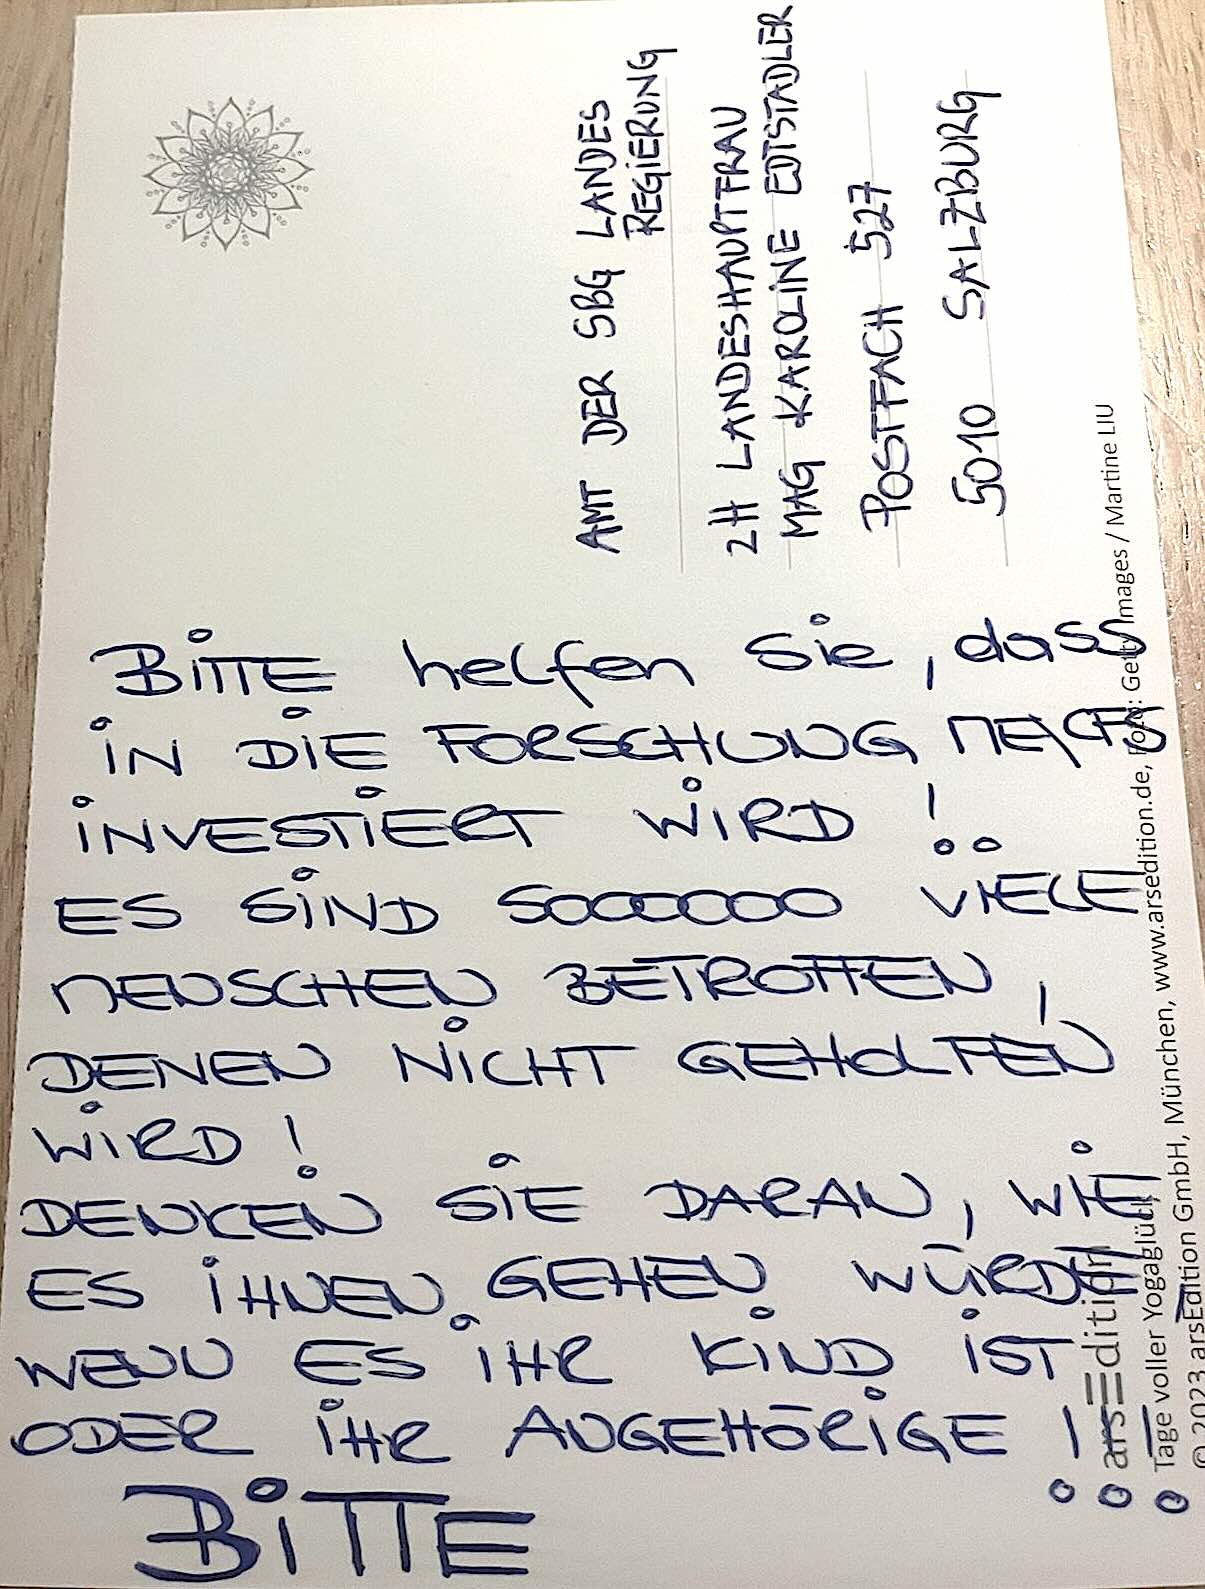 AMT DER SBG LANDES
REGIERUNG
ZH LANDESHAUPTFRAU
MAG KAROLINE EDTSTADLER
POSTFACH 527
5010 SALZBURG
BITTE helfen Sie, dass
IN DIE FORSCHUNG ME/CFS
INVESTIERT WIRD !!
ES SIND SOOOOOOO VIELE
MENSCHEN BETROFFEN,
DENEN NICHT GEHOLFEN
WIRD!
DENKEN SIE DARAN, WIE
ES IHNEN GEHEN WÜRDE
WENN ES IHR KIND IST
ODER IHR ANGEHÖRIGE !!!
BITTE
arsEdition
Tage voller Yogaglück
© 2023 arsEdition GmbH, München, www.arsedition.de, Foto: Getty Images / Martine LIU